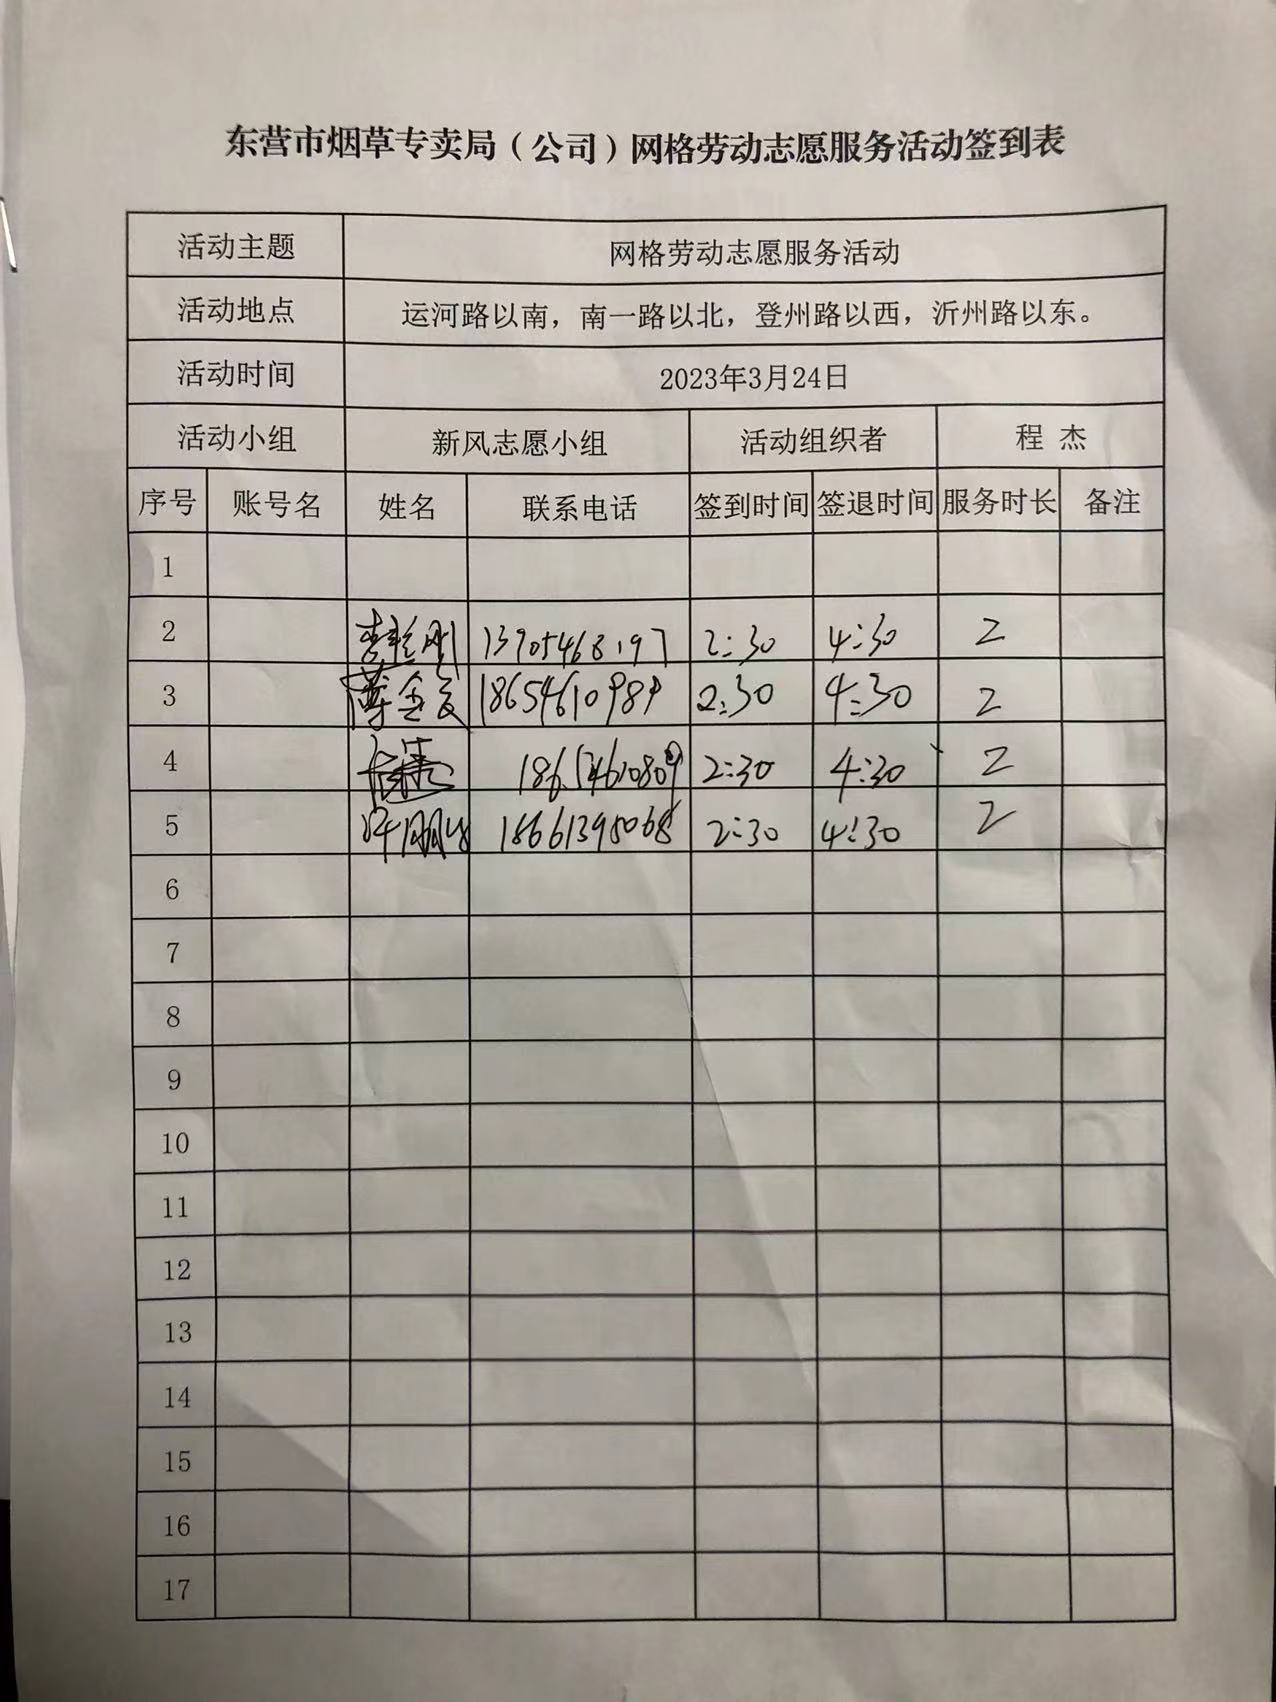 东营市烟草专卖局（公司）网格劳动志愿服务活动签到表
活动主题 网格劳动志愿服务活动
活动地点 运河路以南，南一路以北，登州路以西，沂州路以东。
活动时间 2023年3月24日
活动小组 新风志愿小组 活动组织者 程 杰
序号 账号名 姓名 联系电话 签到时间 签退时间 服务时长 备注
1
2 13705468197 2:30 4:30 2
3 18654610989 2:30 4:30 2
4 2:30 4:30 2
5 18661395068 2:30 4:30 2
6
7
8
9
10
11
12
13
14
15
16
17